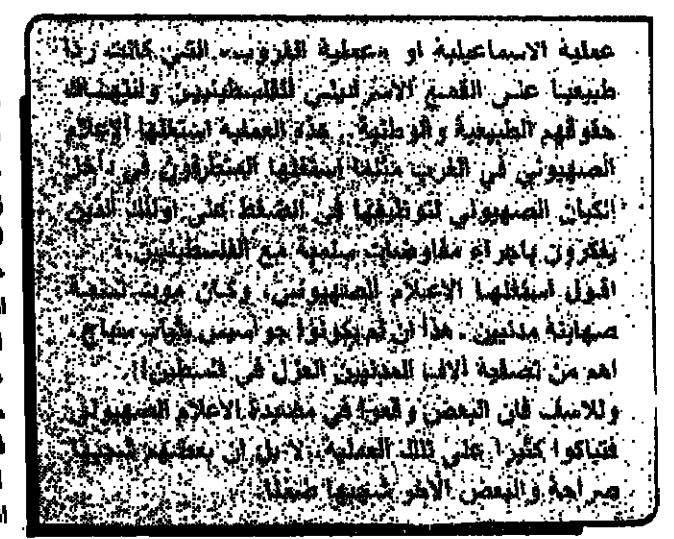 عملية الاسماعيلية او «عملية القروب» التي كانت ردا
طبيعيا على القمع الاسرائيلي للفلسطينيين ولانتهاك
حقوقهم الطبيعية والوطنية.. هذه العملية استغلها الاعلام
الصهيوني في الغرب مثلما استغلها المتطرفون في داخل
الكيان الصهيوني لتوظيفها في الضغط على اولئك الذين
يفكرون باجراء مفاوضات سلمية مع الفلسطينيين..
اقول استغلها الاعلام الصهيوني، وكأن موت تسعة
صهاينة مدنيين.. هذا ان لم يكونوا جواسيس بثياب سياح،
اهم من تصفية آلاف المدنيين العزل في فلسطين!!
وللاسف فان البعض وقعوا في مصيدة الاعلام الصهيوني
فتباكوا كثيرا على تلك العملية، لا بل ان بعضهم شجبها
صراحة والبعض الآخر شجبها ضمنا